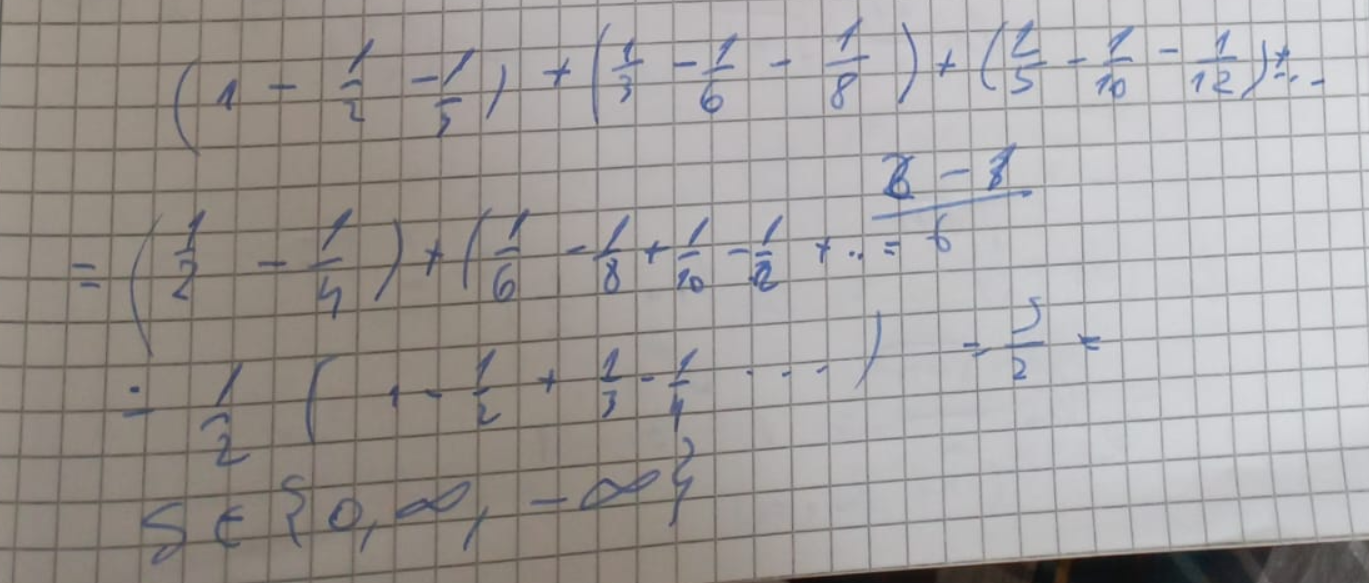 (1 - 1/2 - 1/5) + (1/3 - 1/6 - 1/8) + (1/5 - 1/10 - 1/12) + ...
= (1/2 - 1/4) + (1/6 - 1/8 + 1/10 - 1/12 + .. =
= 1/2 (1 - 1/2 + 1/3 - 1/4 ...) = S/2 =
S ∈ {0, ∞, -∞}